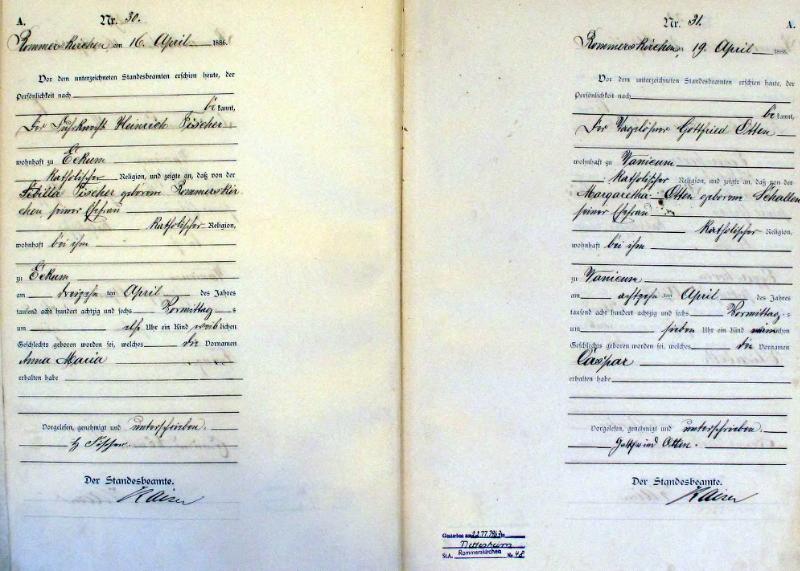 A.
Nr. 30.
Rommerskirchen am 16 April 1886.
Vor dem unterzeichneten Standesbeamten erschien heute, der
Persönlichkeit nach
bekannt,
Der Heinrich Fischer
wohnhaft zu Eckum
katholischer Religion, und zeigte an, daß von der
Sibilla Fischer geborene Rommerskir
chen seiner Ehefrau
katholischer Religion,
wohnhaft bei ihm
zu Eckum
am dreizehn ten April des Jahres
tausend acht hundert achtzig und sechs Vormittags
um elf Uhr ein Kind weiblichen
Geschlechts geboren worden sei, welches die Vornamen
Anna Maria
erhalten habe
Vorgelesen, genehmigt und unterschrieben.
H Fischer
Der Standesbeamte.
Kaiser
Nr. 31.
A.
Rommerskirchen, 19 April 1886.
Vor dem unterzeichneten Standesbeamten erschien heute, der
Persönlichkeit nach
bekannt,
Der Tagelöhner Gottfried Otten
wohnhaft zu Vanicum
katholischer Religion, und zeigte an, daß von der
Margaretha Otten geborene Schallen
seiner Ehefrau
katholischer Religion,
wohnhaft bei ihm
zu Vanicum
am achtzehn ten April des Jahres
tausend acht hundert achtzig und sechs Vormittags
um sieben Uhr ein Kind männlichen
Geschlechts geboren worden sei, welches die Vornamen
Caspar
erhalten habe
Vorgelesen, genehmigt und unterschrieben.
Gottfried Otten.
Der Standesbeamte.
Kaiser
Gestorben am
Nettesheim
St.A. Rommerskirchen Nr. 48